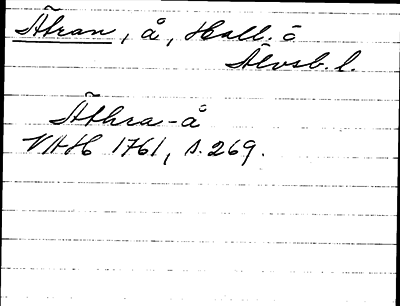 Ätran, å, Hall. o
Älvsb. l.
Äthra-å
VAH 1761, s. 269.